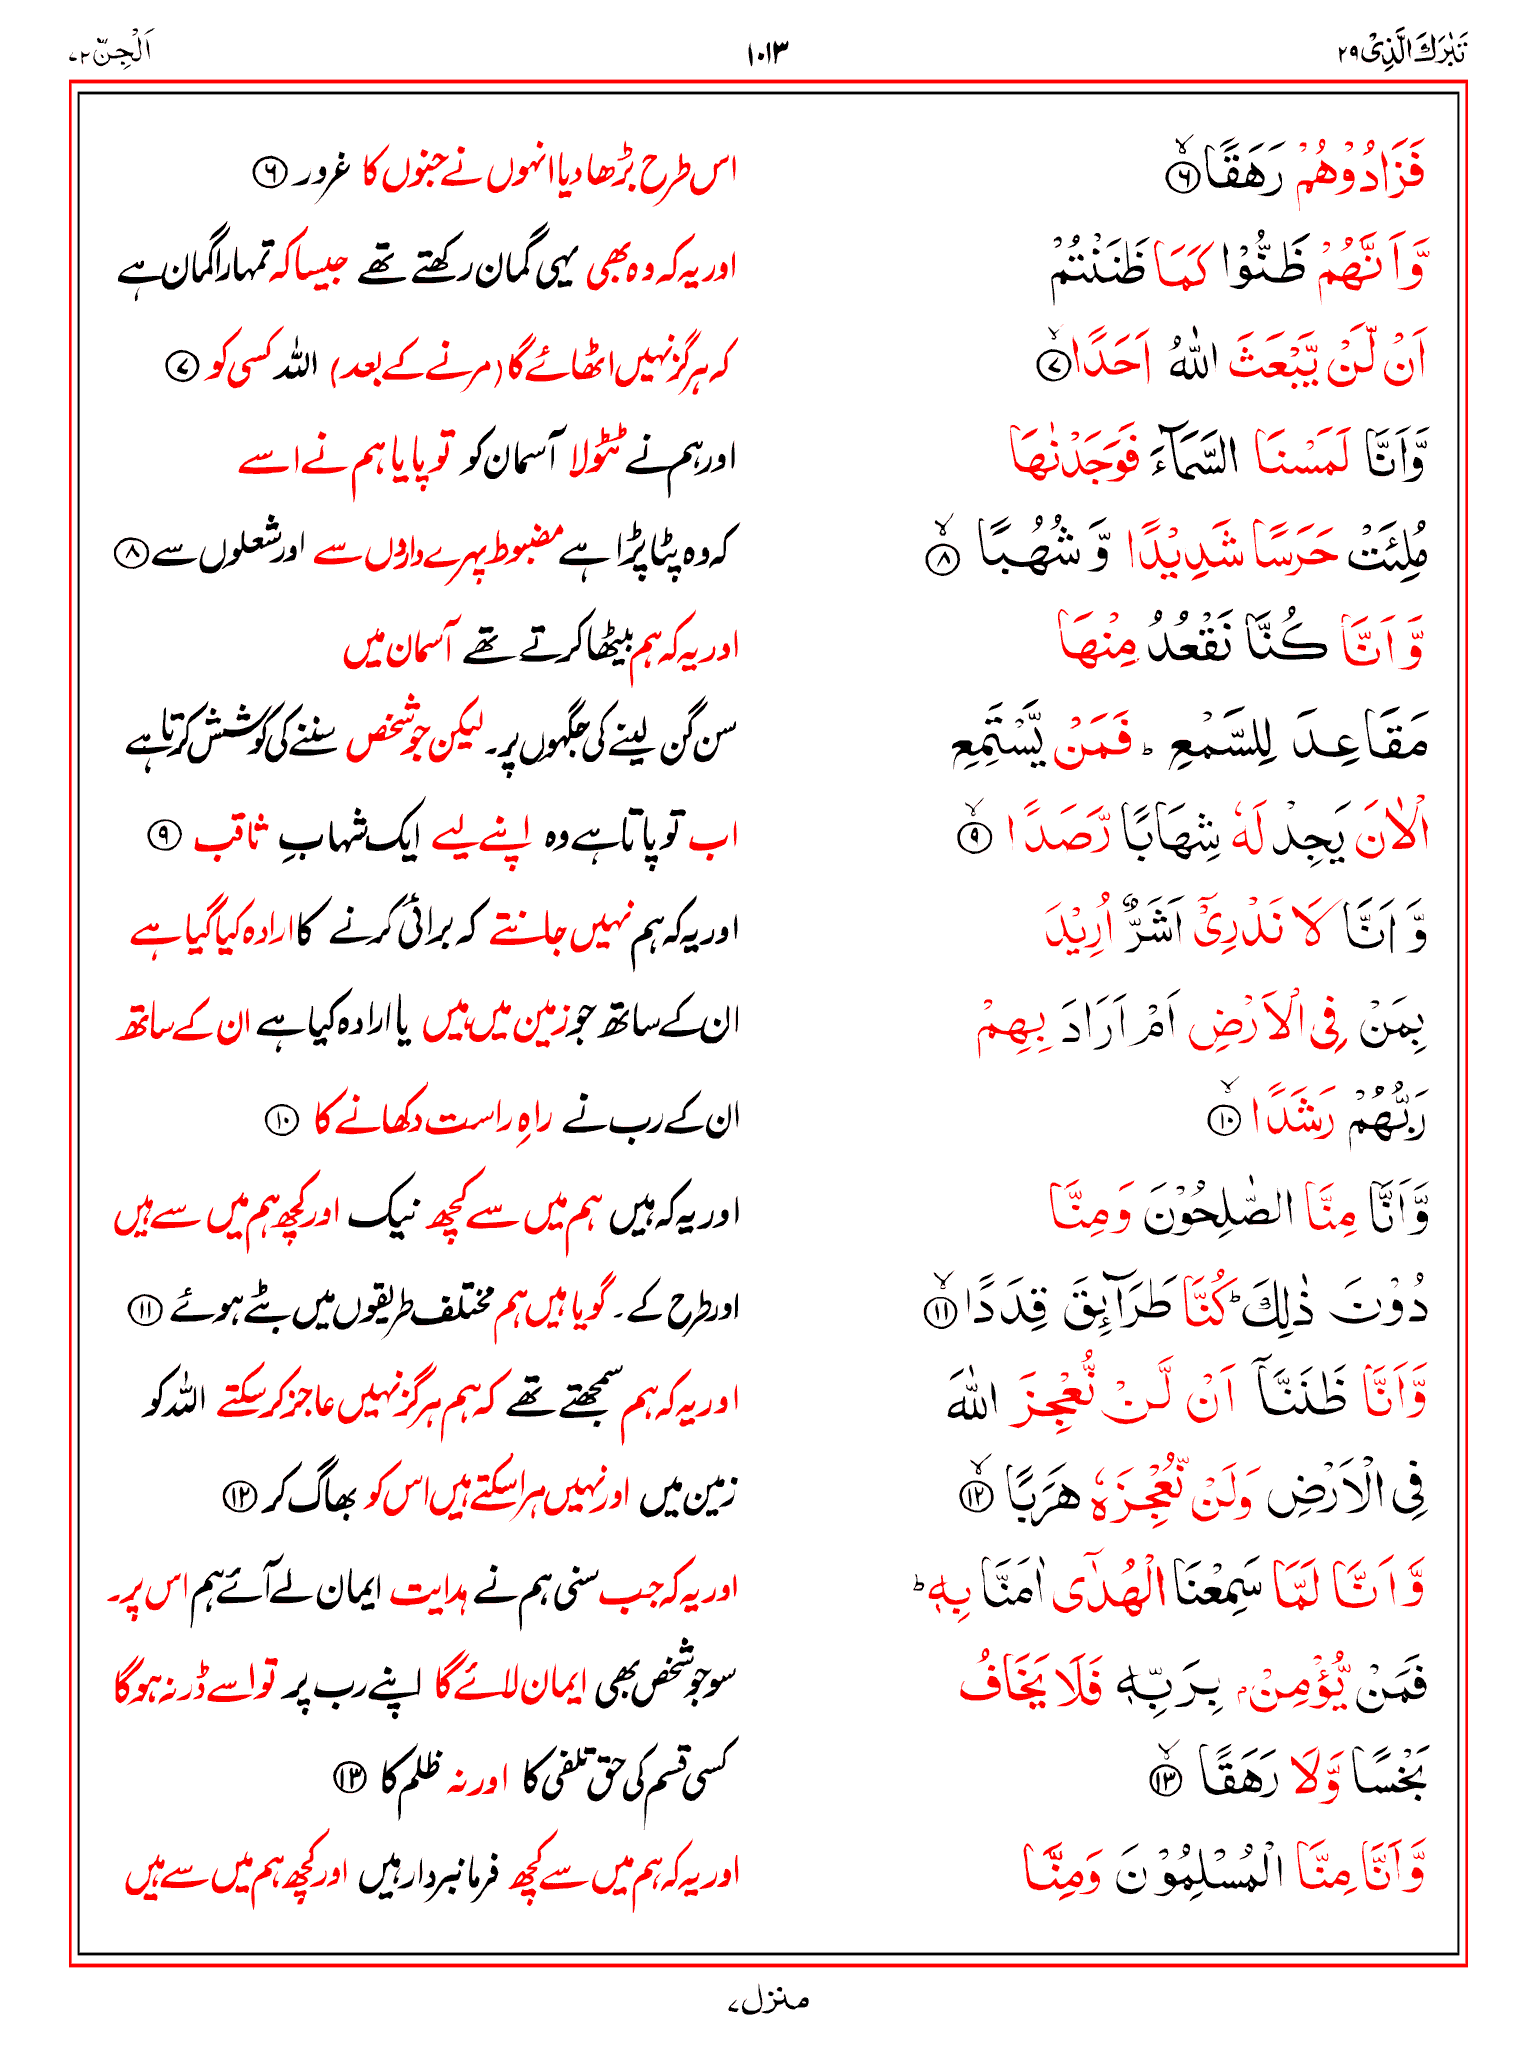 تَبٰرَكَ الَّذِىْ ٢٩ ١٠١٣ اَلْجِنّ ٧٢
فَزَادُوْهُمْ رَهَقًا ۙ‏﴿۶﴾ اس طرح بڑھا دیا انہوں نے جنوں کا غرور ﴿۶﴾
وَّاَنَّهُمْ ظَنُّوْا كَمَا ظَنَنْتُمْ اور یہ کہ وہ بھی یہی گمان رکھتے تھے جیسا کہ تمہارا گمان ہے
اَنْ لَّنْ يَّبْعَثَ اللّٰهُ اَحَدًا ۙ‏﴿۷﴾ کہ ہرگز نہیں اٹھائے گا (مرنے کے بعد) اللہ کسی کو ﴿۷﴾
وَّاَنَّا لَمَسْنَا السَّمَآءَ فَوَجَدْنٰهَا اور ہم نے ٹٹولا آسمان کو تو پایا ہم نے اسے
مُلِئَتْ حَرَسًا شَدِيْدًا وَّ شُهُبًا ۙ‏﴿۸﴾ کہ وہ پٹا پڑا ہے مضبوط پہرے داروں سے اور شعلوں سے ﴿۸﴾
وَّ اَنَّا كُنَّا نَقْعُدُ مِنْهَا اور یہ کہ ہم بیٹھا کرتے تھے آسمان میں
مَقَاعِدَ لِلسَّمْعِ ؕ فَمَنْ يَّسْتَمِعِ سن گن لینے کی جگہوں پر۔ لیکن جو شخص سننے کی کوشش کرتا ہے
الْاٰنَ يَجِدْ لَهٗ شِهَابًا رَّصَدًا ۙ‏﴿۹﴾ اب تو پاتا ہے وہ اپنے لیے ایک شہابِ ثاقب ﴿۹﴾
وَّ اَنَّا لَا نَدْرِىْٓ اَشَرٌّ اُرِيْدَ اور یہ کہ ہم نہیں جانتے کہ برائی کرنے کا ارادہ کیا گیا ہے
بِمَنْ فِى الْاَرْضِ اَمْ اَرَادَ بِهِمْ ان کے ساتھ جو زمین میں ہیں یا ارادہ کیا ہے ان کے ساتھ
رَبُّهُمْ رَشَدًا ۙ‏﴿۱۰﴾ ان کے رب نے راہِ راست دکھانے کا ﴿۱۰﴾
وَّاَنَّا مِنَّا الصّٰلِحُوْنَ وَمِنَّا اور یہ کہ ہیں ہم میں سے کچھ نیک اور کچھ ہم میں سے ہیں
دُوْنَ ذٰلِكَ ؕ كُنَّا طَرَآئِقَ قِدَدًا ۙ‏﴿۱۱﴾ اور طرح کے۔ گویا ہیں ہم مختلف طریقوں میں بٹے ہوئے ﴿۱۱﴾
وَّاَنَّا ظَنَنَّاۤ اَنْ لَّنْ نُّعْجِزَ اللّٰهَ اور یہ کہ ہم سمجھتے تھے کہ ہم ہرگز نہیں عاجز کر سکتے اللہ کو
فِى الْاَرْضِ وَلَنْ نُّعْجِزَهٗ هَرَبًا ۙ‏﴿۱۲﴾ زمین میں اور نہیں ہرا سکتے ہیں اس کو بھاگ کر ﴿۱۲﴾
وَّ اَنَّا لَمَّا سَمِعْنَا الْهُدٰٓى اٰمَنَّا بِهٖ ؕ اور یہ کہ جب سنی ہم نے ہدایت ایمان لے آئے ہم اس پر۔
فَمَنْ يُّؤْمِنْۢ بِرَبِّهٖ فَلَا يَخَافُ سو جو شخص بھی ایمان لائے گا اپنے رب پر تو اسے ڈر نہ ہوگا
بَخْسًا وَّلَا رَهَقًا ۙ‏﴿۱۳﴾ کسی قسم کی حق تلفی کا اور نہ ظلم کا ﴿۱۳﴾
وَّاَنَّا مِنَّا الْمُسْلِمُوْنَ وَمِنَّا اور یہ کہ ہم میں سے کچھ فرمانبردار ہیں اور کچھ ہم میں سے ہیں
منزل ٧